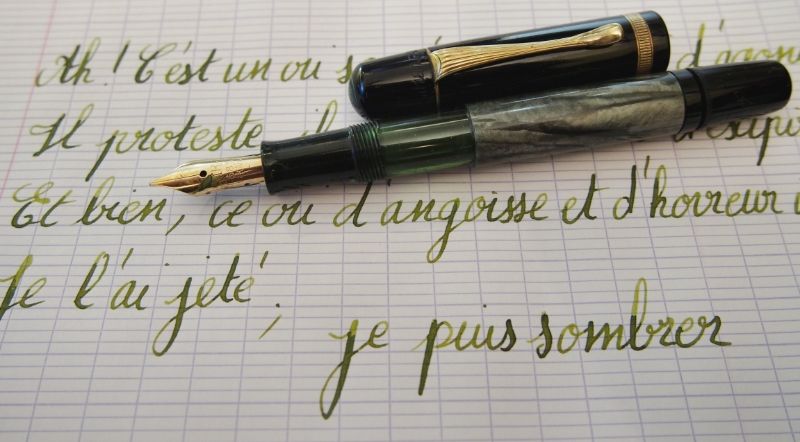 Ah! C'est un ou
Il proteste
Et bien, ce ou d'angoisse et d'horreur
Je l'ai jeté; je puis sombrer